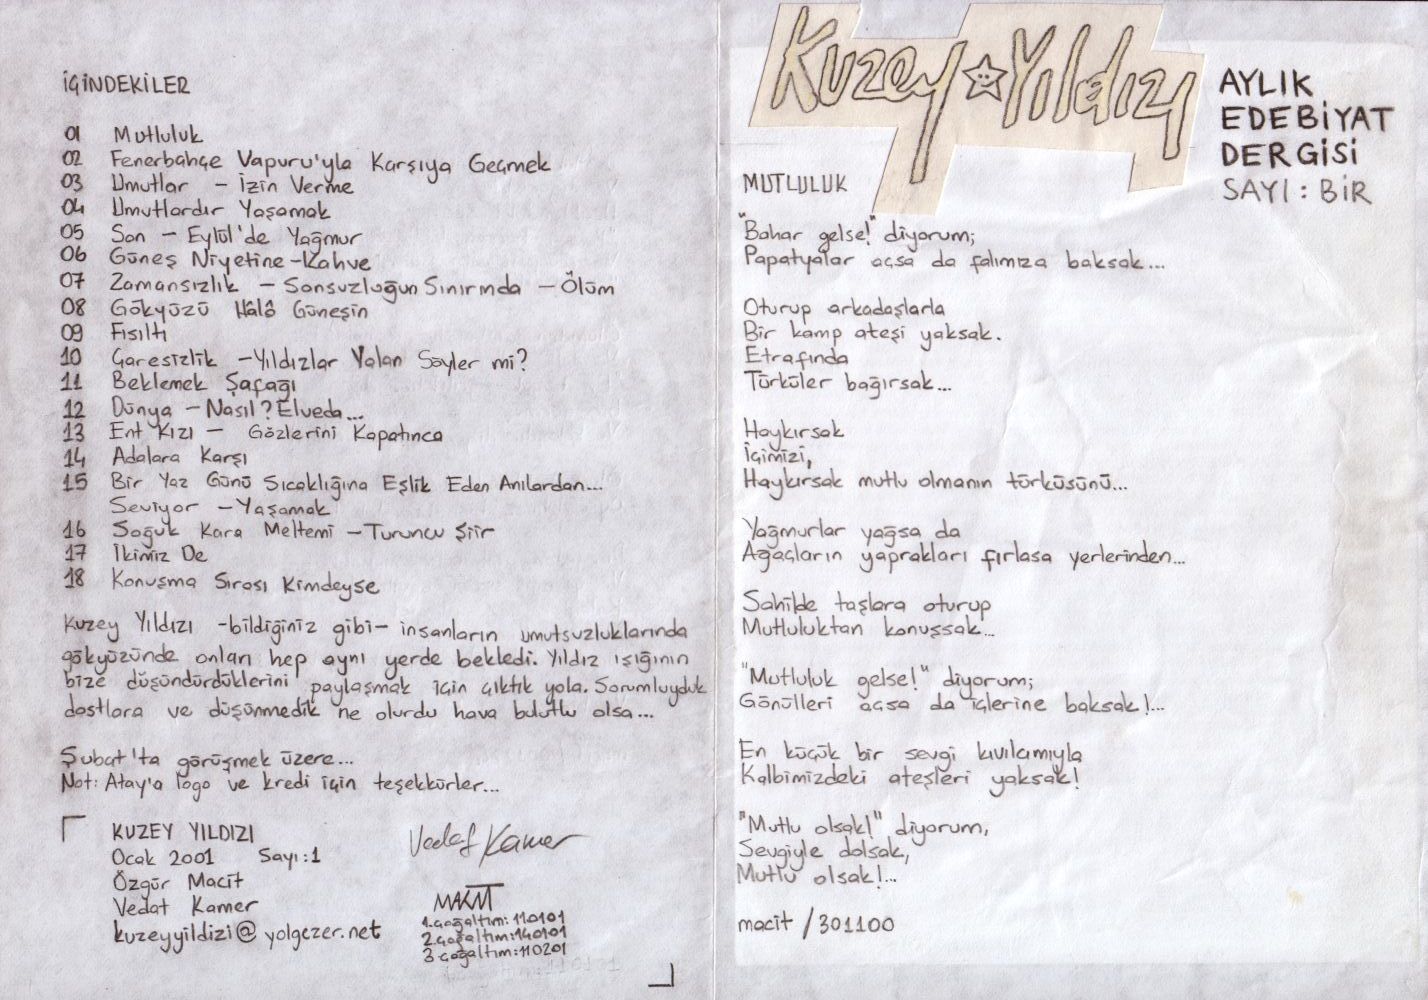 İÇİNDEKİLER
01 Mutluluk
02 Fenerbahçe Vapuru'yla Karşıya Geçmek
03 Umutlar - İzin Verme
04 Umutlardır Yaşamak
05 Son - Eylül'de Yağmur
06 Güneş Niyetine - Kahve
07 Zamansızlık - Sonsuzluğun Sınırında - Ölüm
08 Gökyüzü Hâlâ Güneşin
09 Fısıltı
10 Çaresizlik - Yıldızlar Yalan Söyler mi?
11 Beklemek Şafağı
12 Dünya - Nasıl? Elveda...
13 Ent Kızı - Gözlerini Kapatınca
14 Adalara Karşı
15 Bir Yaz Günü Sıcaklığına Eşlik Eden Anılardan...
Seviyor - Yaşamak
16 Soğuk Kara Meltemi - Turuncu Şiir
17 İkimiz De
18 Konuşma Sırası Kimdeyse
Kuzey Yıldızı -bildiğiniz gibi- insanların umutsuzluklarında
gökyüzünde onları hep aynı yerde bekledi. Yıldız ışığının
bize düşündürdüklerini paylaşmak için çıktık yola. Sorumluyduk
dostlara ve düşünmedik ne olurdu hava bulutlu olsa...
Şubat'ta görüşmek üzere...
Not: Atay'a logo ve kredi için teşekkürler...
KUZEY YILDIZI
Ocak 2001 Sayı:1
Özgür Macit
Vedat Kamer
kuzeyyildizi@yolgezer.net
Vedat Kamer
MACİT
1.çoğaltım:110101
2.çoğaltım:140101
3.çoğaltım:110201
Kuzey Yıldızı
AYLIK
EDEBİYAT
DERGİSİ
SAYI: BİR
MUTLULUK
"Bahar gelse!" diyorum;
Papatyalar açsa da falımıza baksak...
Oturup arkadaşlarla
Bir kamp ateşi yaksak.
Etrafında
Türküler bağırsak...
Haykırsak
İçimizi,
Haykırsak mutlu olmanın türküsünü...
Yağmurlar yağsa da
Ağaçların yaprakları fırlasa yerlerinden...
Sahilde taşlara oturup
Mutluluktan konuşsak...
"Mutluluk gelse!" diyorum;
Gönülleri açsa da içlerine baksak!...
En küçük bir sevgi kıvılcımıyla
Kalbimizdeki ateşleri yaksak!
"Mutlu olsak!" diyorum,
Sevgiyle dolsak,
Mutlu olsak!...
macit /301100